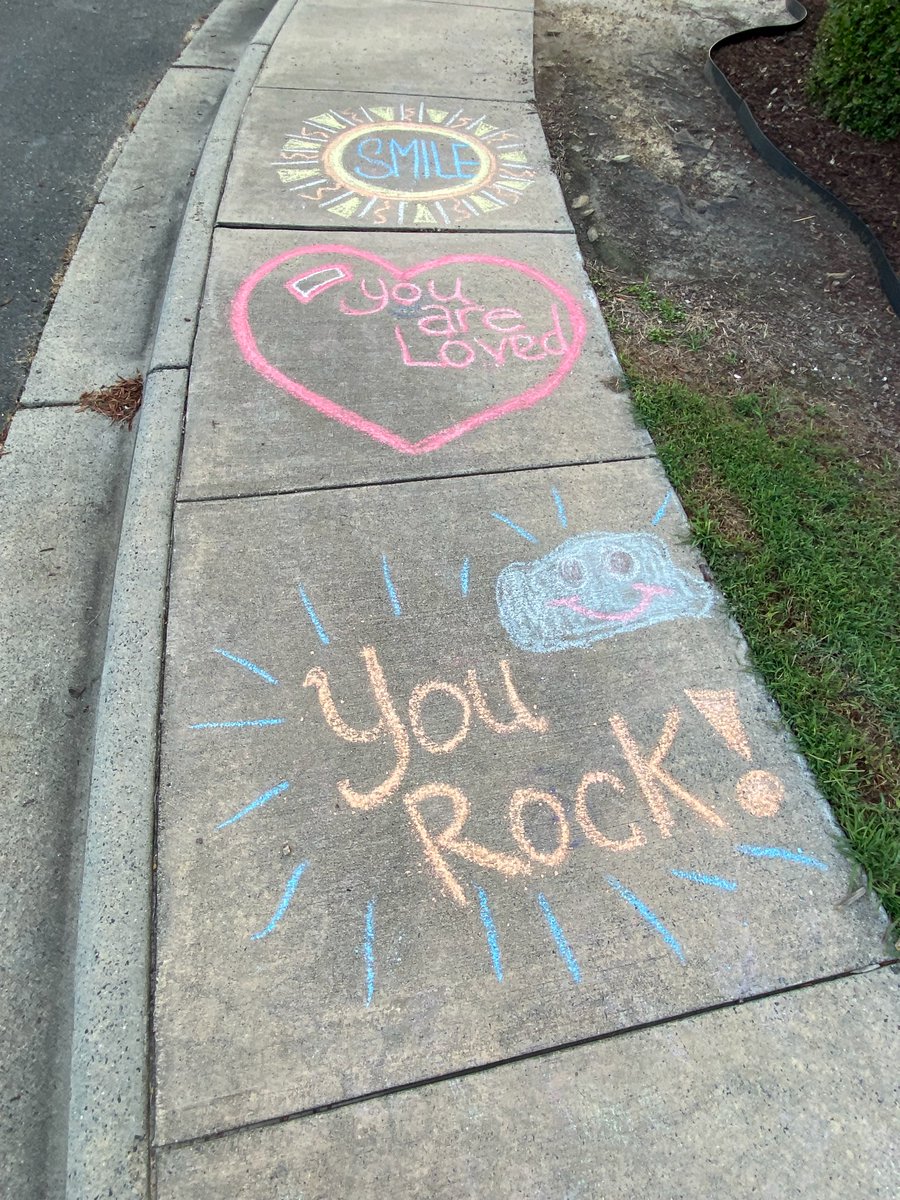 SMILE
you
are
Loved
You
Rock!